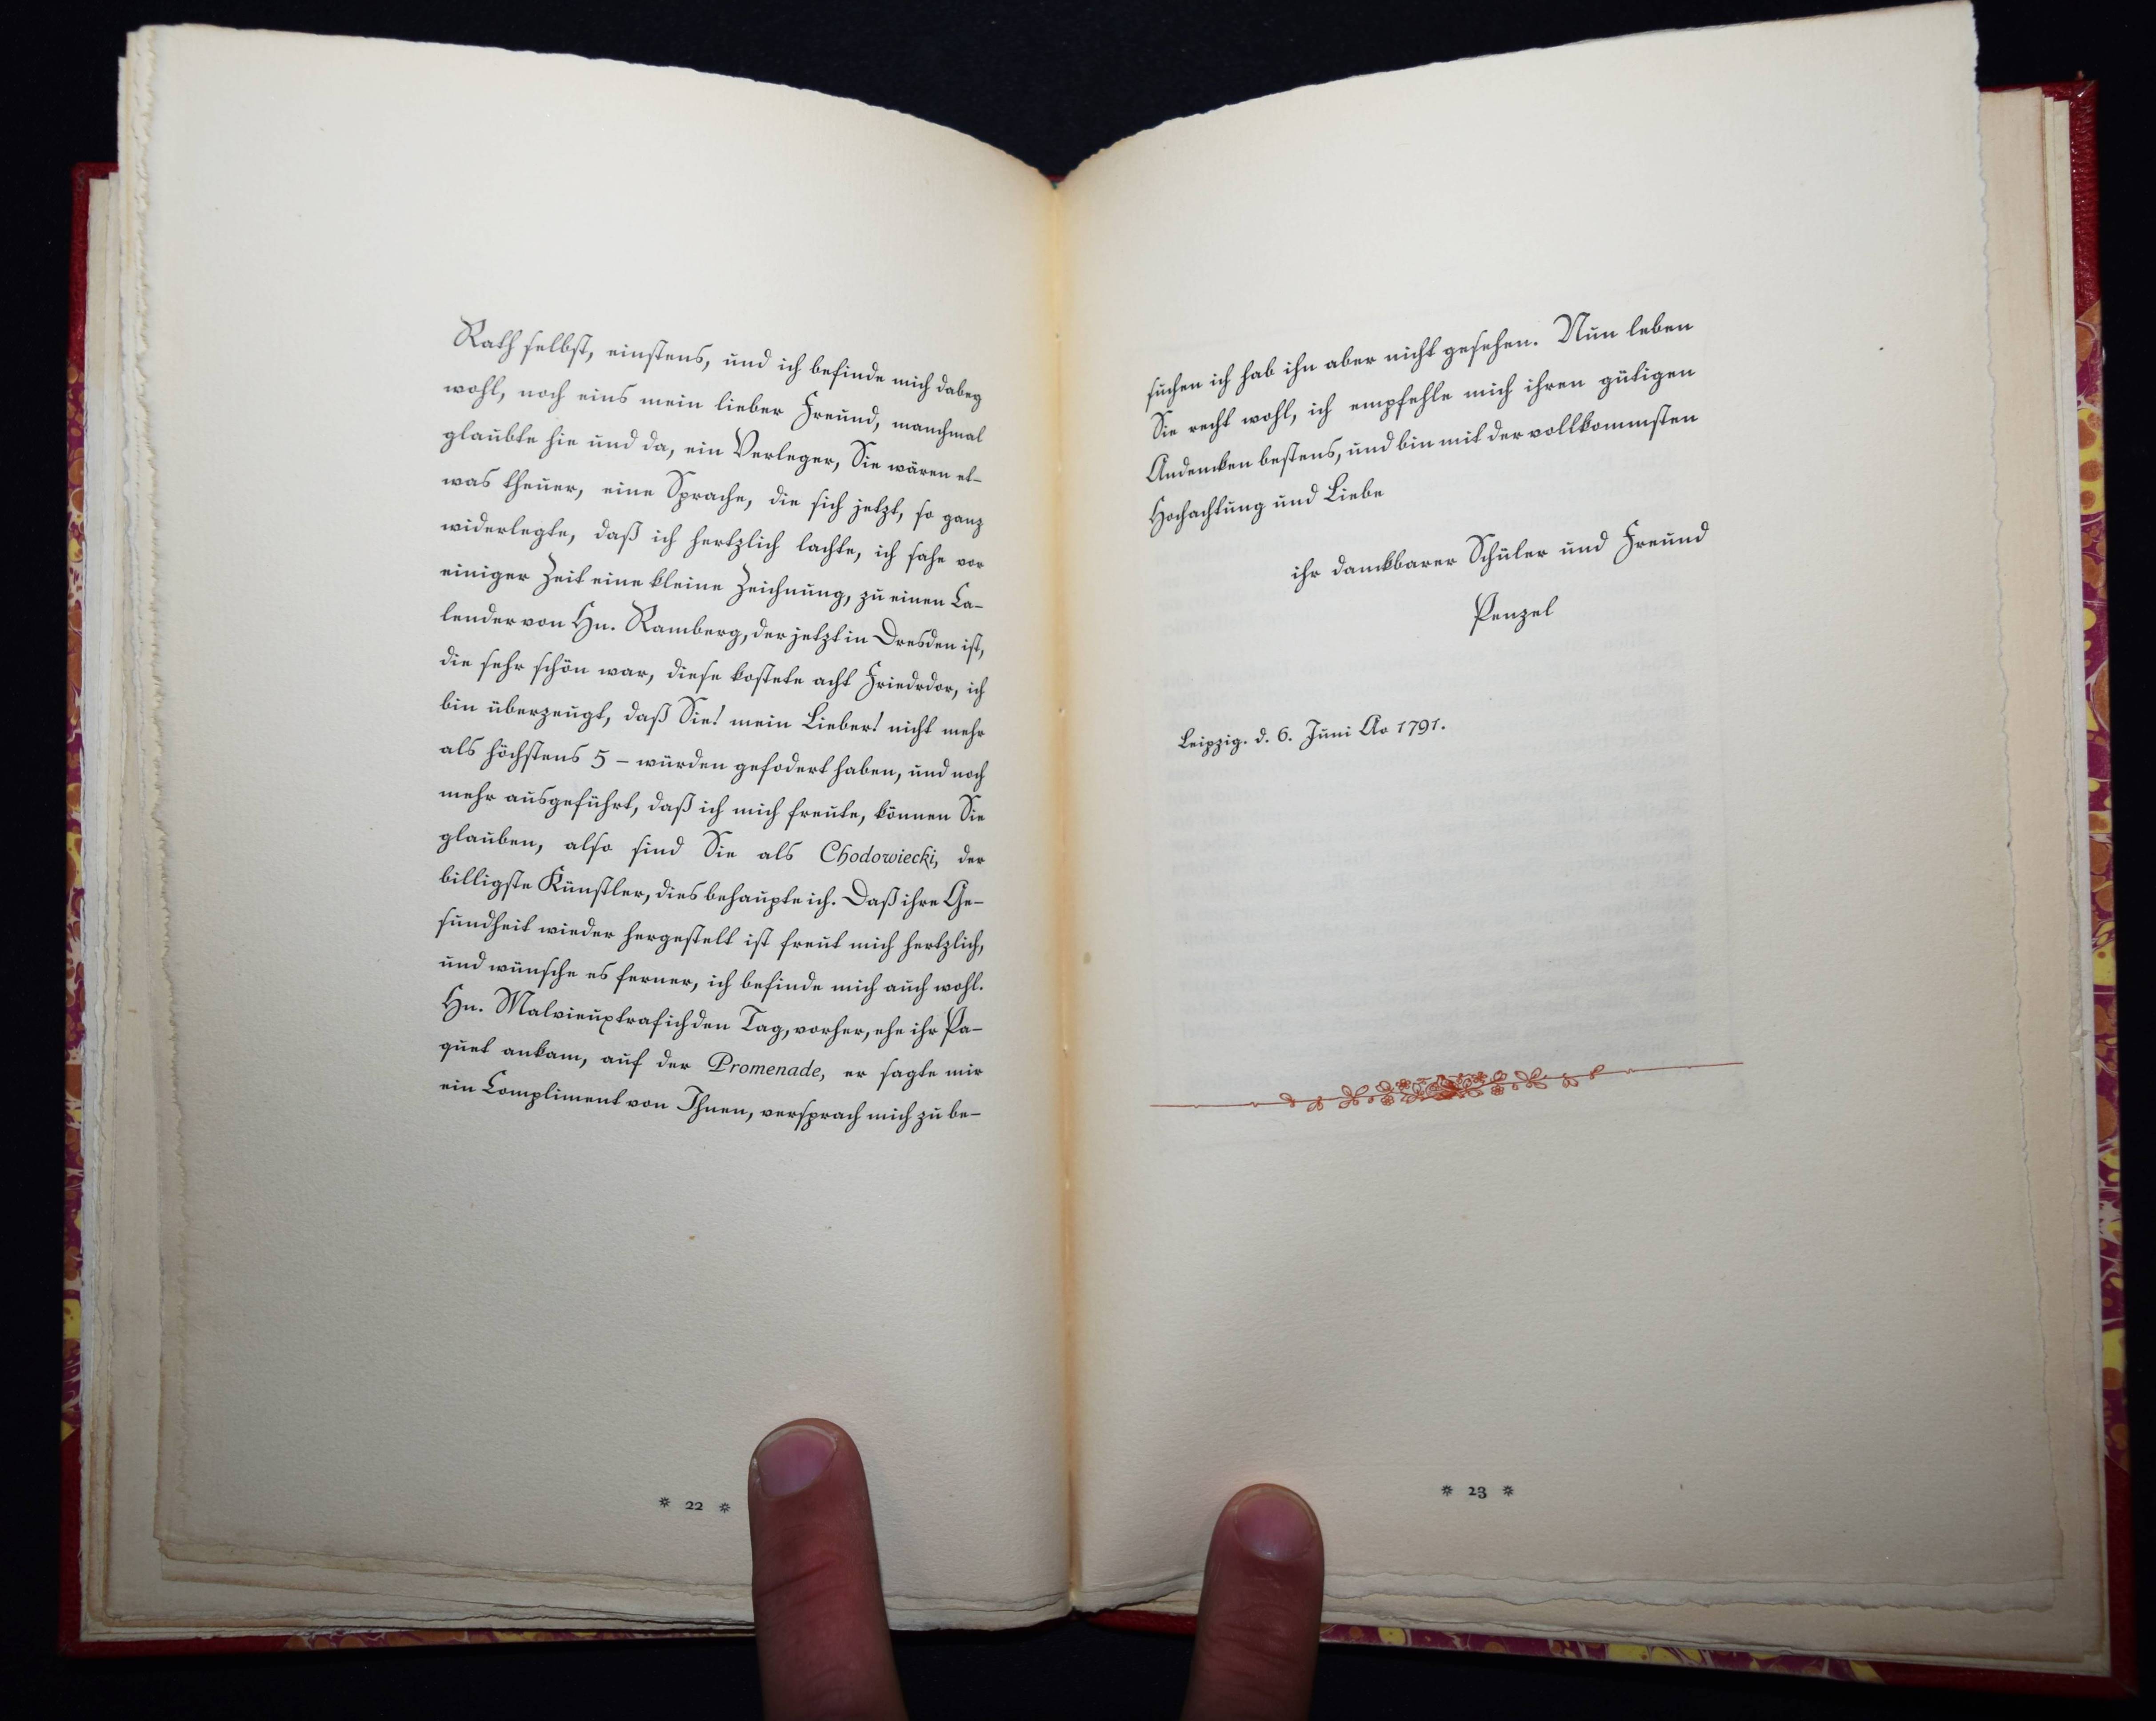 Rath selbst, einstens, und ich befinde mich dabey
wohl, noch eins mein lieber Freund, manchmal
glaubte hie und da, ein Verleger, Sie wären et-
was theuer, eine Sprache, die sich jetzt, so ganz
widerlegte, daß ich hertzlich lachte, ich sahe vor
einiger Zeit eine kleine Zeichnung, zu einen Ca-
lender von Hn. Ramberg, der jetzt in Dresden ist,
die sehr schön war, diese kostete acht Friedrdor, ich
bin überzeugt, daß Sie! mein Lieber! nicht mehr
als höchstens 5 – würden gefodert haben, und noch
mehr ausgeführt, daß ich mich freute, können Sie
glauben, also sind Sie als Chodowiecki, der
billigste Künstler, dies behaupte ich. Daß ihre Ge-
sundheit wieder hergestelt ist freut mich hertzlich,
und wünsche es ferner, ich befinde mich auch wohl.
Hn. Malvieux traf ich den Tag, vorher, ehe ihr Pa-
quet ankam, auf der Promenade, er sagte mir
ein Compliment von Ihnen, versprach mich zu be-
* 22 *
suchen ich hab ihn aber nicht gesehen. Nun leben
Sie recht wohl, ich empfehle mich ihren gütigen
Andencken bestens, und bin mit der vollkommsten
Hochachtung und Liebe
ihr danckbarer Schüler und Freund
Penzel
Leipzig. d. 6. Juni Ao 1791.
* 23 *